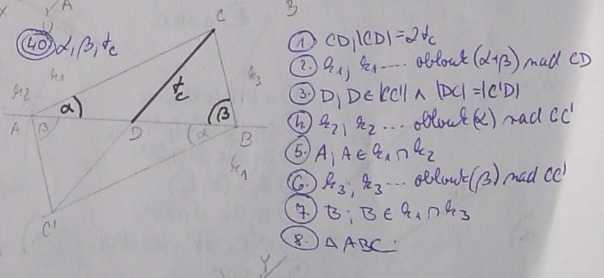 40 α, β, t_c
C
k_1
k_2
k_3
t_c
α
β
A
β
D
α
B
k_1
C'
3
A
① CD; |CD| = 2t_c
② k_1; k_1 ... oblouk (α+β) nad CD
③ D; D ∈ |CC'| ∧ |DC| = |C'D|
4. k_2; k_2 ... oblouk (α) nad CC'
⑤ A; A ∈ k_1 ∩ k_2
⑥ k_3; k_3 ... oblouk (β) nad CC'
⑦ B; B ∈ k_1 ∩ k_3
⑧ △ABC